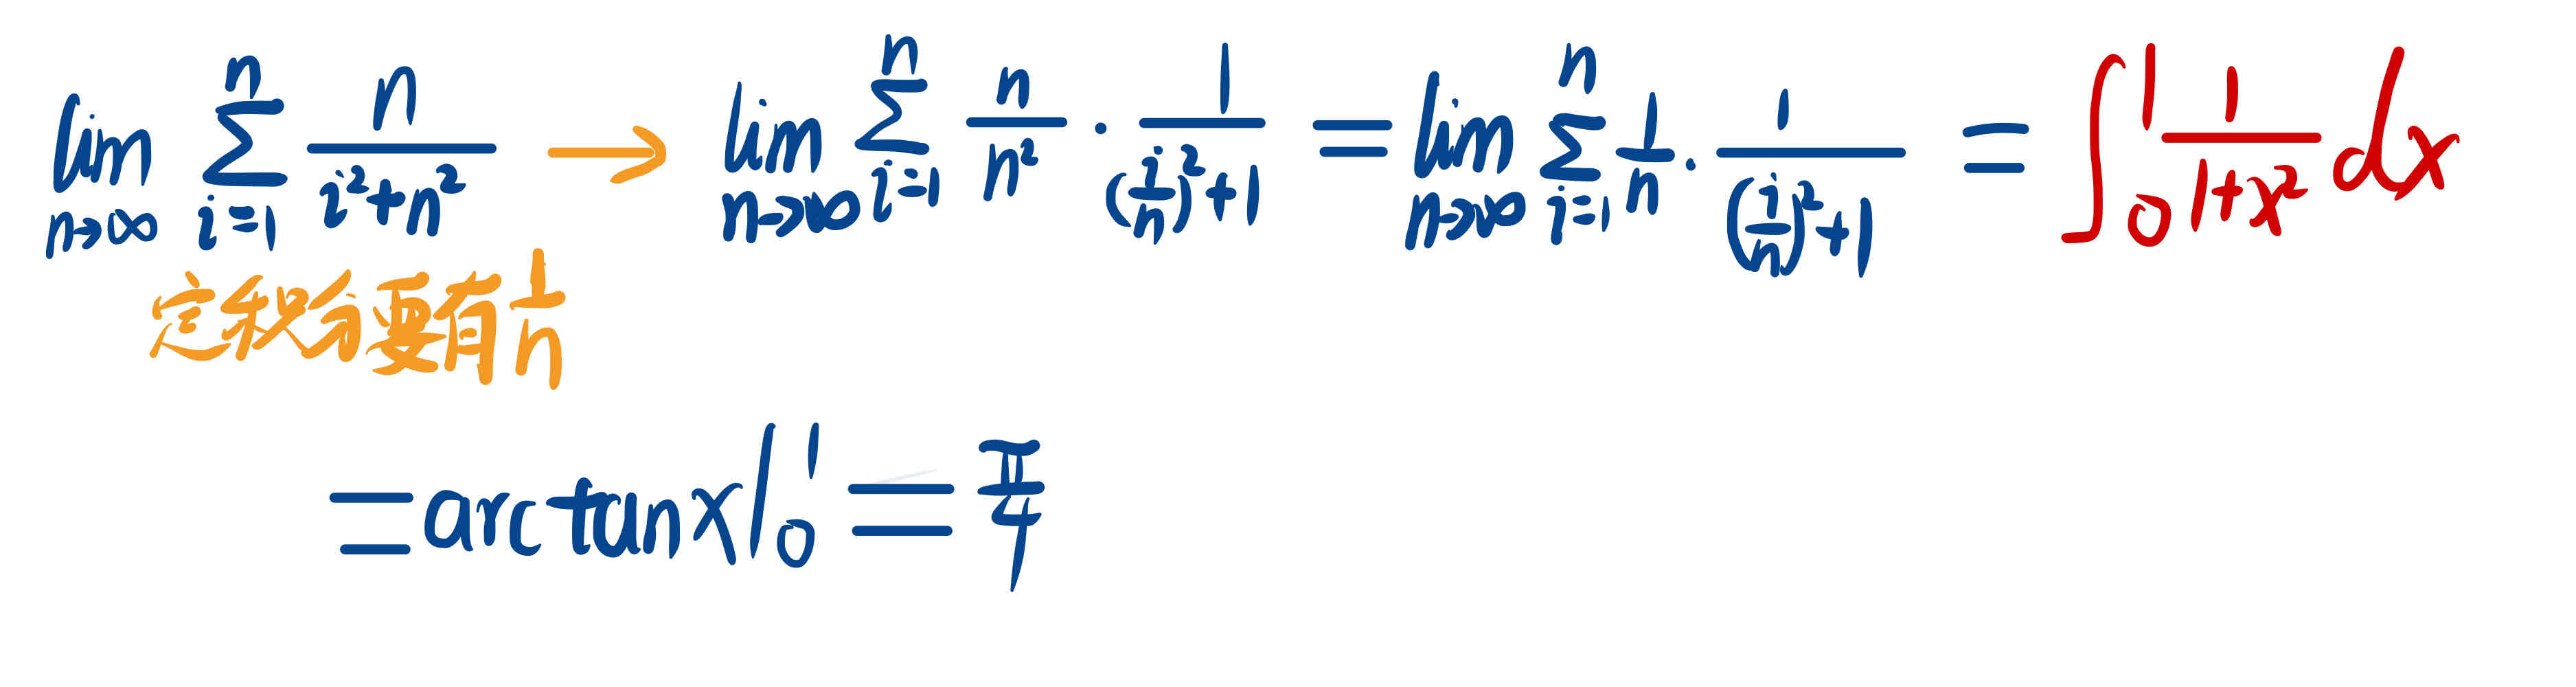 lim_{n→∞} Σ_{i=1}^{n} n/(i²+n²) → lim_{n→∞} Σ_{i=1}^{n} n/n² · 1/((i/n)²+1) = lim_{n→∞} Σ_{i=1}^{n} 1/n · 1/((i/n)²+1) = ∫₀¹ 1/(1+x²) dx
定积分要有 1/n
= arctanx|₀¹ = π/4